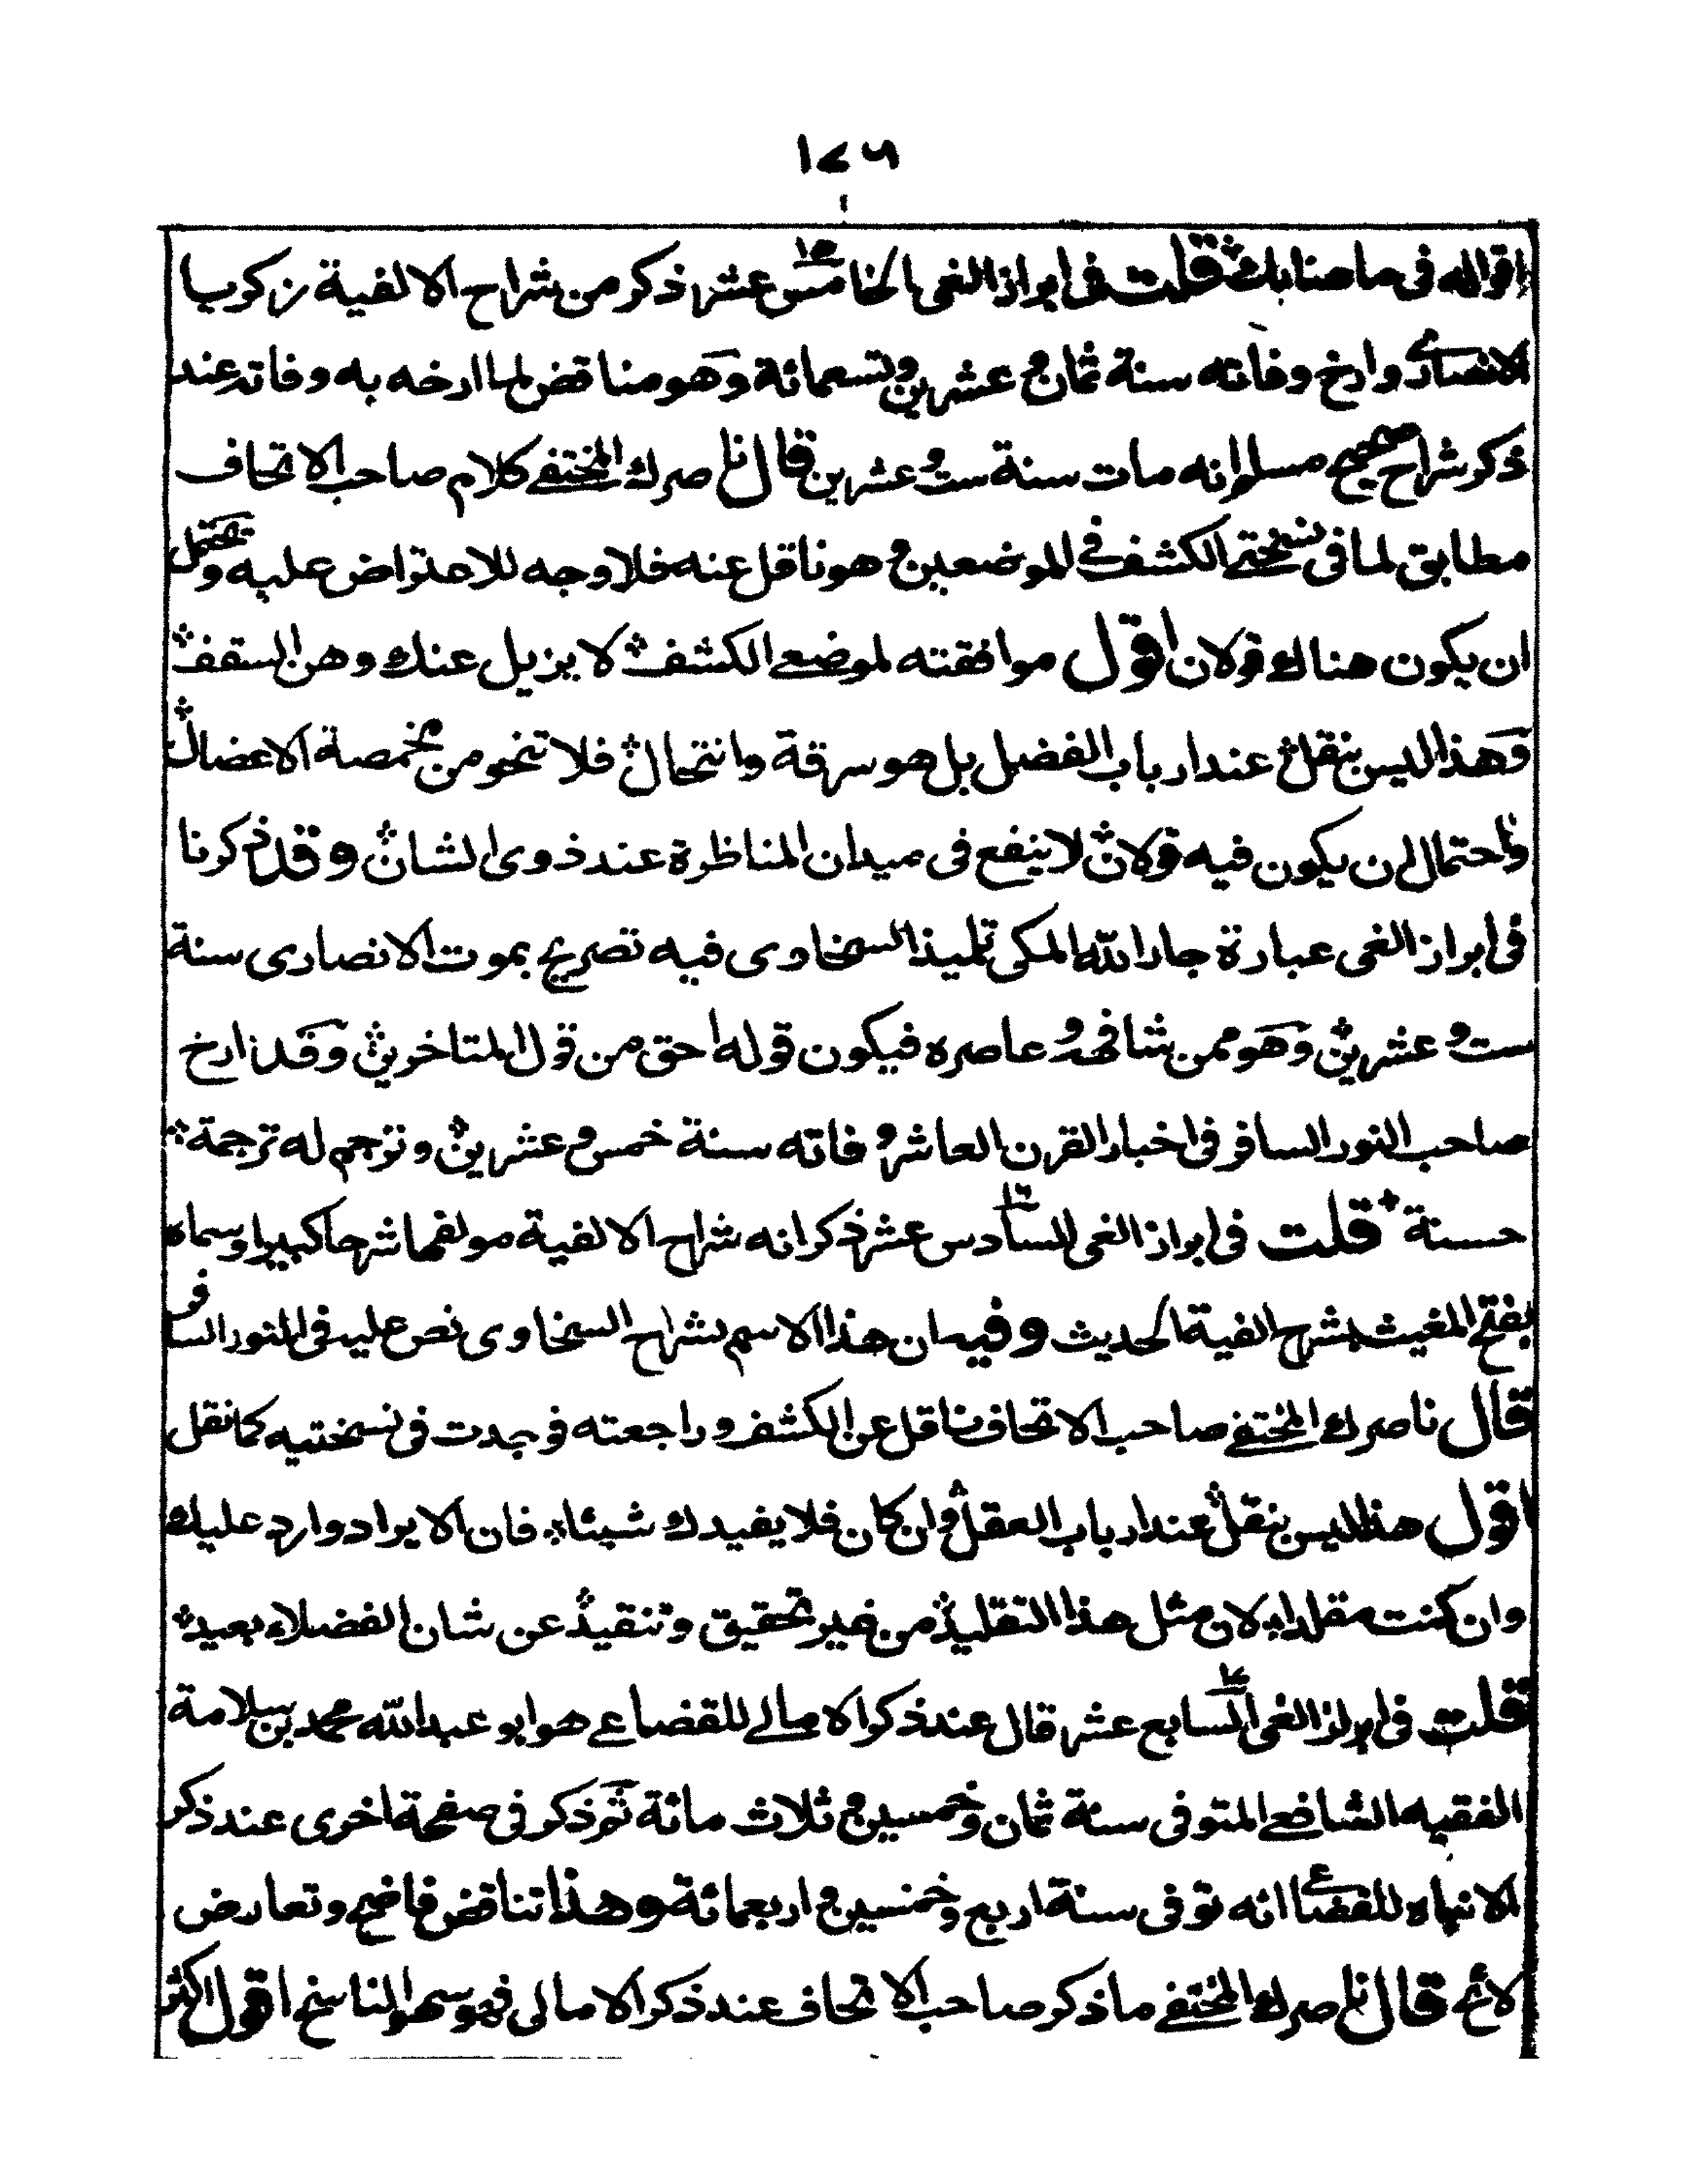 ١٧٦
اقواله فى ما صنابك قلت فى ابراز الغى الخامس عشر ١٥ ذكر من شراح الالفية زكريا
الانصارى وارخ وفاته سنة ثمان وعشرين وتسعمائة وهو مناقض لما ارخه به وفاته عند
ذكر شراح صحيح مسلم انه مات سنة ست وعشرين قال ناصرك المختفى كلام صاحب الاتحاف
مطابق لما فى نسختى الكشف فى الموضعين وهو ناقل عنه فلا وجه للاعتراض عليه ويحتمل
ان يكون هناك قولان اقول موافقته لموضعى الكشف لا يزيل عنك وهن السقف
وهذا ليس بنقل عند ارباب الفضل بل هو سرقة وانتحال فلا تنجو من مخمصة الاعضال
واحتمال ان يكون فيه قولان لا ينفع فى ميدان المناظرة عند ذوى الشان وقد ذكرنا
فى ابراز الغى عبارة جار الله المكى تلميذ السخاوى فيه تصريح بموت الانصارى سنة
ست وعشرين وهو ممن شافهه وعاصره فيكون قوله احق من قول المتاخرين وقد ارخ
صاحب النور السافر فى اخبار القرن العاشر وفاته سنة خمس وعشرين وترجم له ترجمة
حسنة قلت فى ابراز الغى السادس عشر ١٦ ذكر انه شرح الالفية مولفها شرحا كبيرا وسماه
بفتح المغيث بشرح الفية الحديث وفيه ان هذا الاسم لشرح السخاوى نص عليه فى النور السافر
قال ناصرك المختفى صاحب الاتحاف ناقل عن الكشف وراجعته فوجدت فى نسختيه كما نقل
اقول هذا ليس بنقل عند ارباب العقل وان كان فلا يفيدك شيئا فان الايراد وارد عليك
وان كنت مقلدا لان مثل هذا التقليد من غير تحقيق وتنقيد عن شان الفضلاء بعيد
قلت فى ابراز الغى السابع عشر ١٧ قال عند ذكر الامالى للقضاعى هو ابو عبد الله محمد بن سلامة
الفقيه الشافعى المتوفى سنة ثمان وخمسين وثلاث مائة ثم ذكر فى صفحة اخرى عند ذكر
الانباه للقضاعى انه توفى سنة اربع وخمسين واربعمائة وهذا تناقض فاضح وتعارض
لائح قال ناصرك المختفى ما ذكر صاحب الاتحاف عند ذكر الامالى فهو سهو الناسخ اقول اكثر